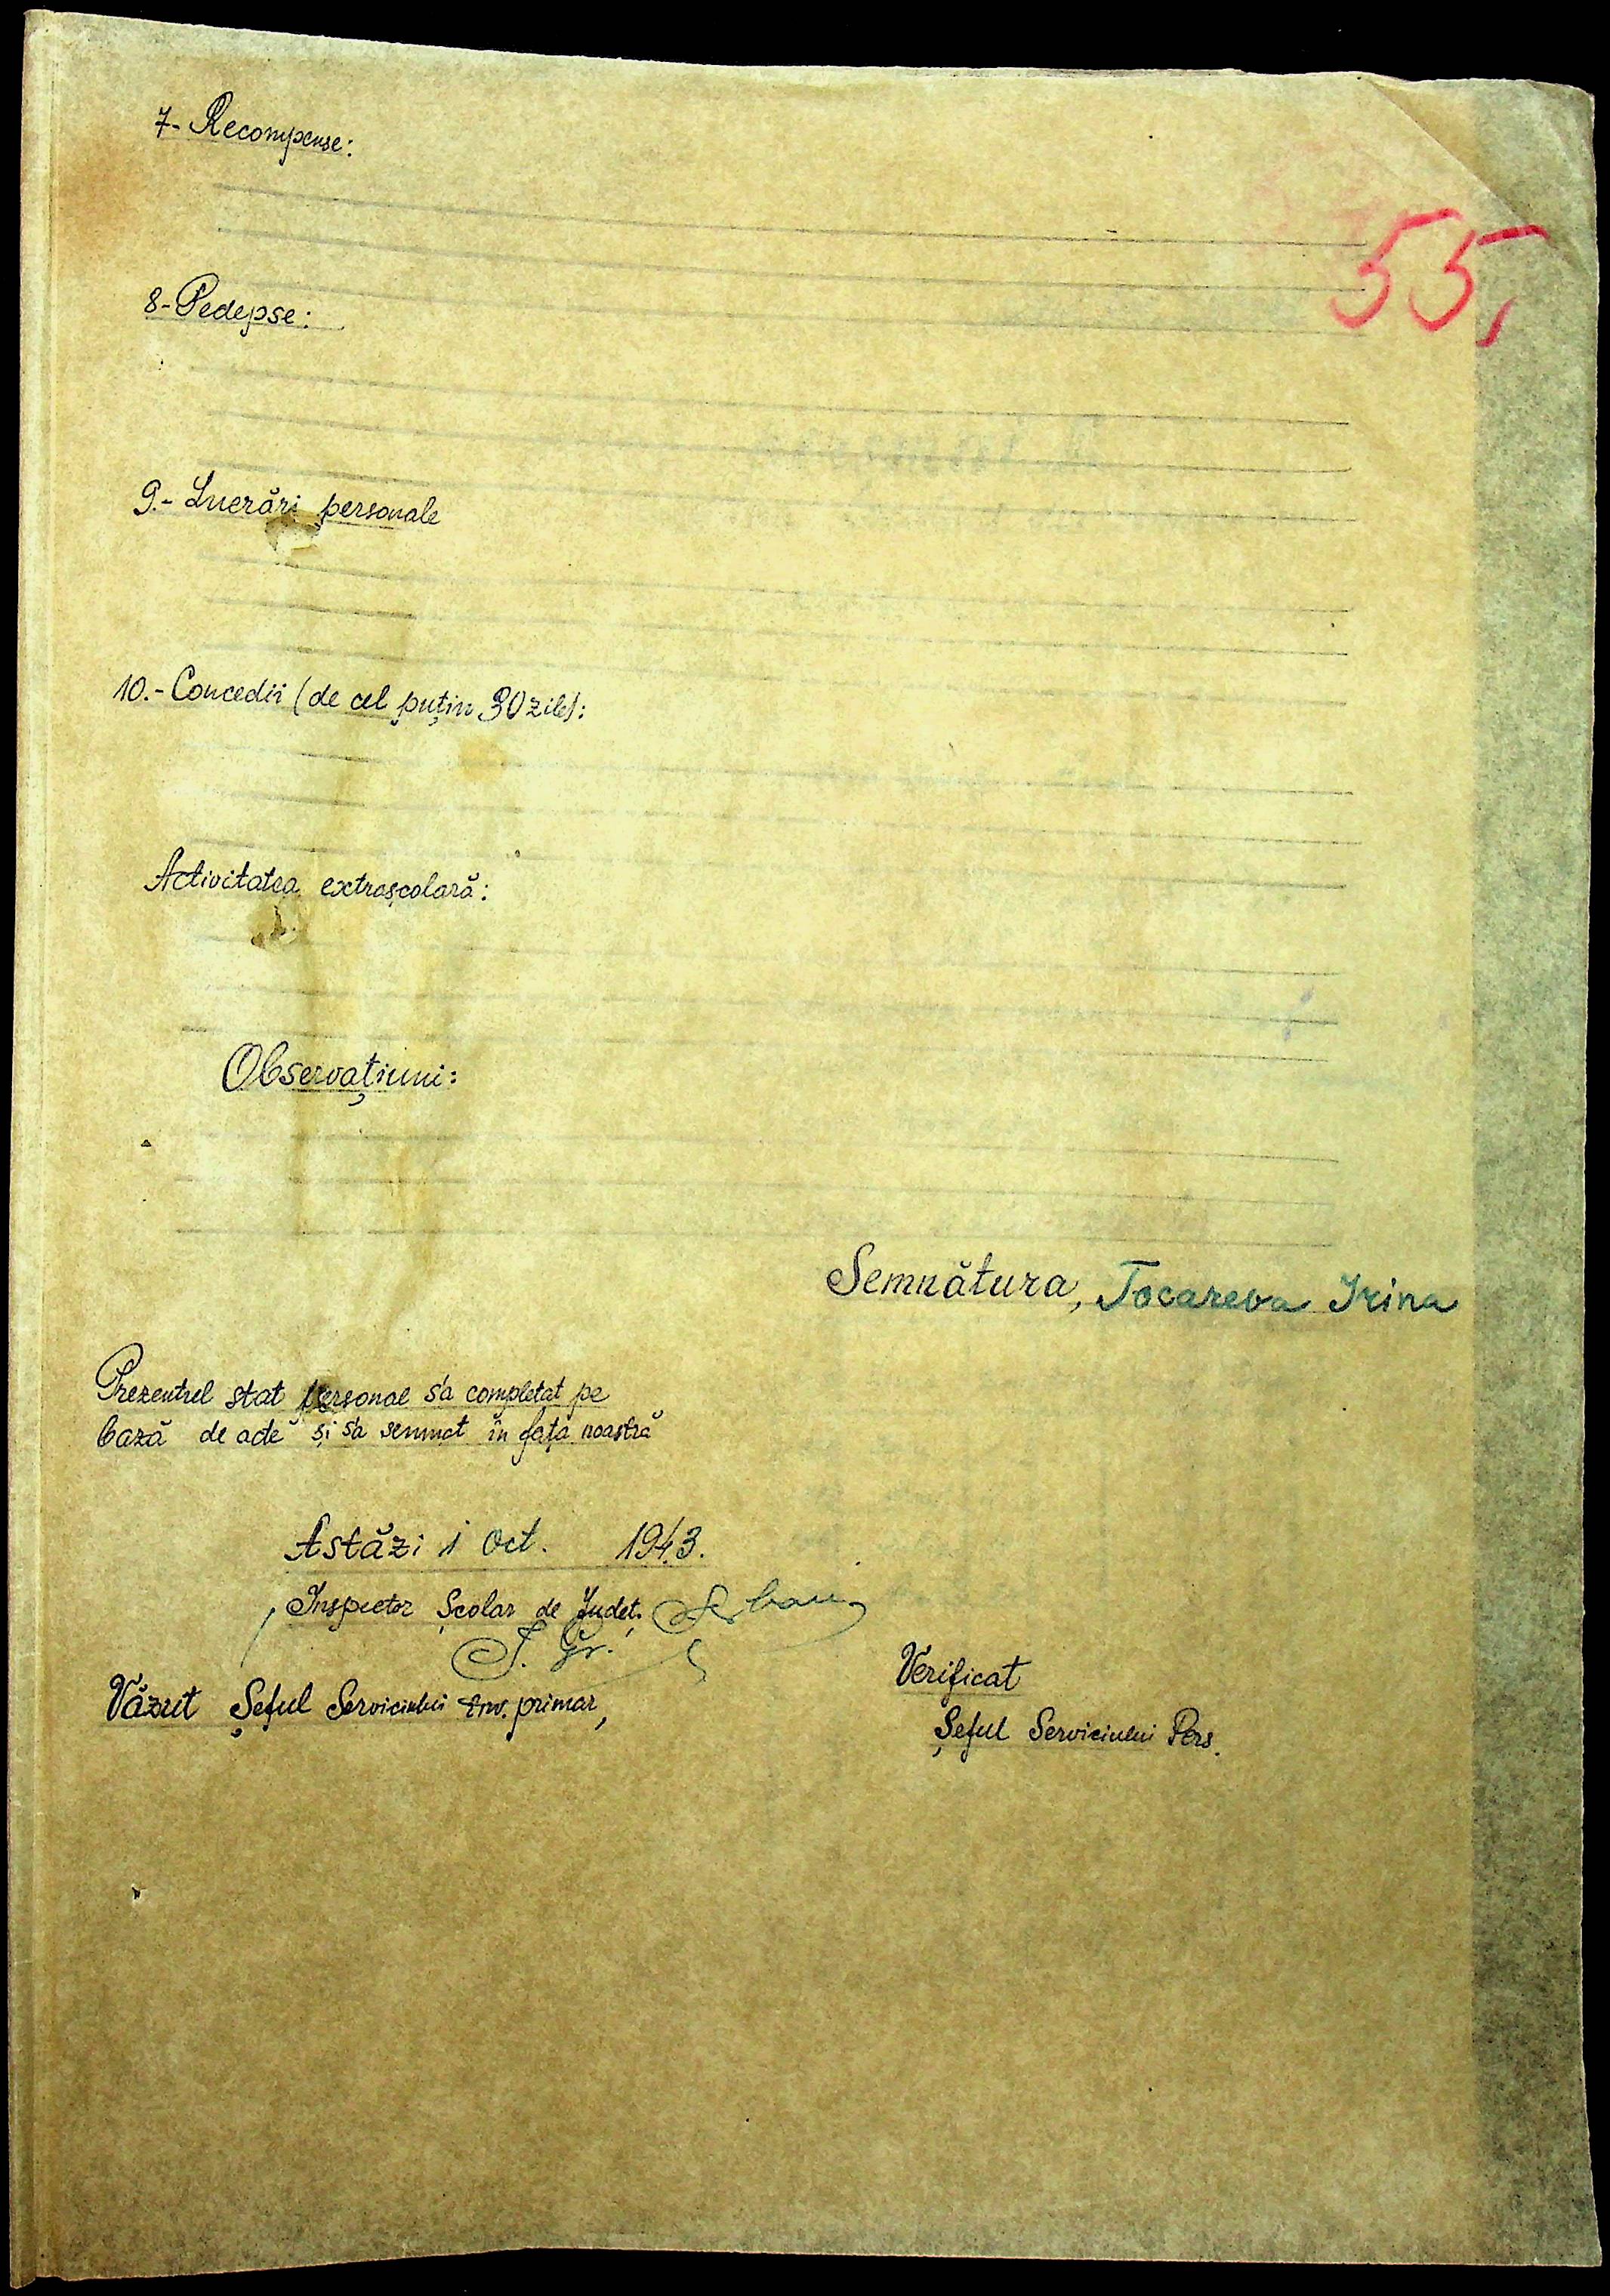 7- Recompense:
55,
8- Pedepse:
9.- Lucrări personale
10.- Concedii (de cel puțin 30 zile):
Activitatea extrașcolară:
Observațiuni:
Semnătura, Tocareva Irina
Prezentul stat personal s'a completat pe
bază de acte și s'a semnat în fața noastră
Astăzi 1 Oct. 1943.
Inspector Școlar de Județ, Șerban
Gr.
Văzut Șeful Serviciului înv. primar,
Verificat
Șeful Serviciului Pers.